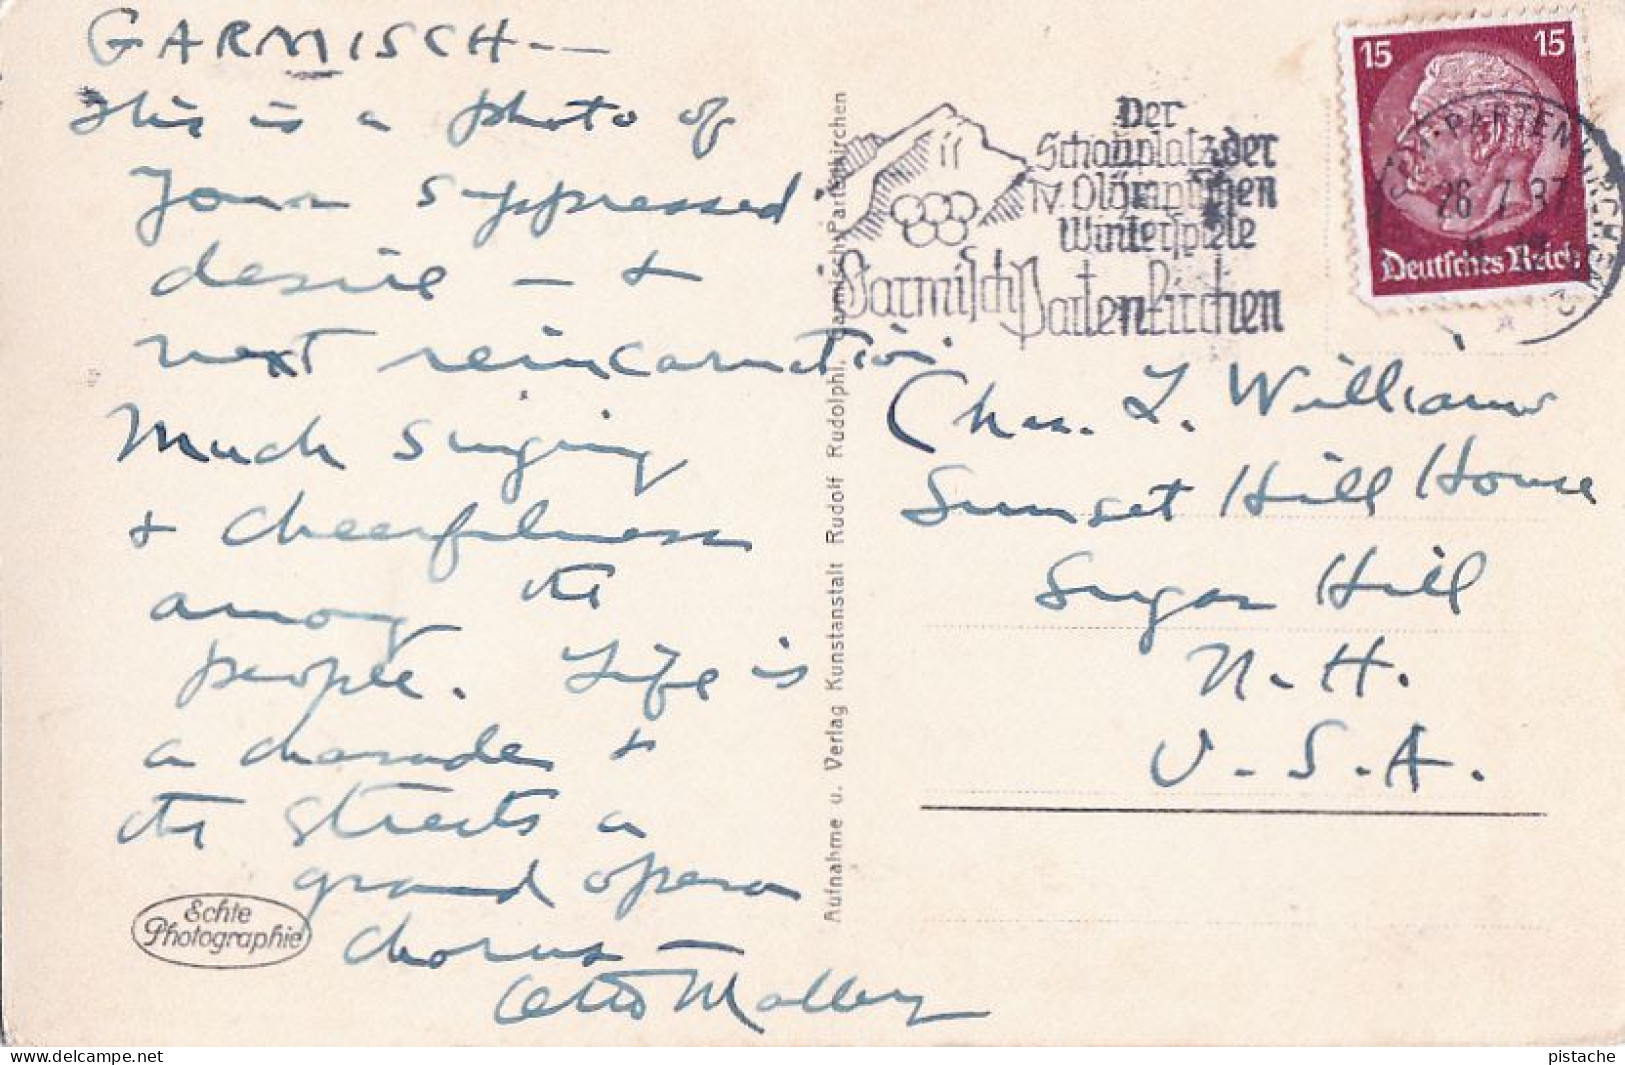 GARMISCH --
This is a photo of
your suppressed
desire - +
next reincarnation
Much singing
+ cheerfulness
among the
people. Life is
a charade +
the streets a
grand opera
chorus -
Otto Mallery
Echte
Photographie
Aufnahme u. Verlag Kunstanstalt Rudolf Rudolphi, Garmisch-Partenkirchen
Der
Schauplatz der
IV. Olympischen
Winterspiele
Garmisch Partenkirchen
15 15
Deutsches Reich
PARTENKIRCHEN
26 7 37
Chas. L. Williams
Sunset Hill House
Sugar Hill
N.H.
U.S.A.
delcampe.net
pistache